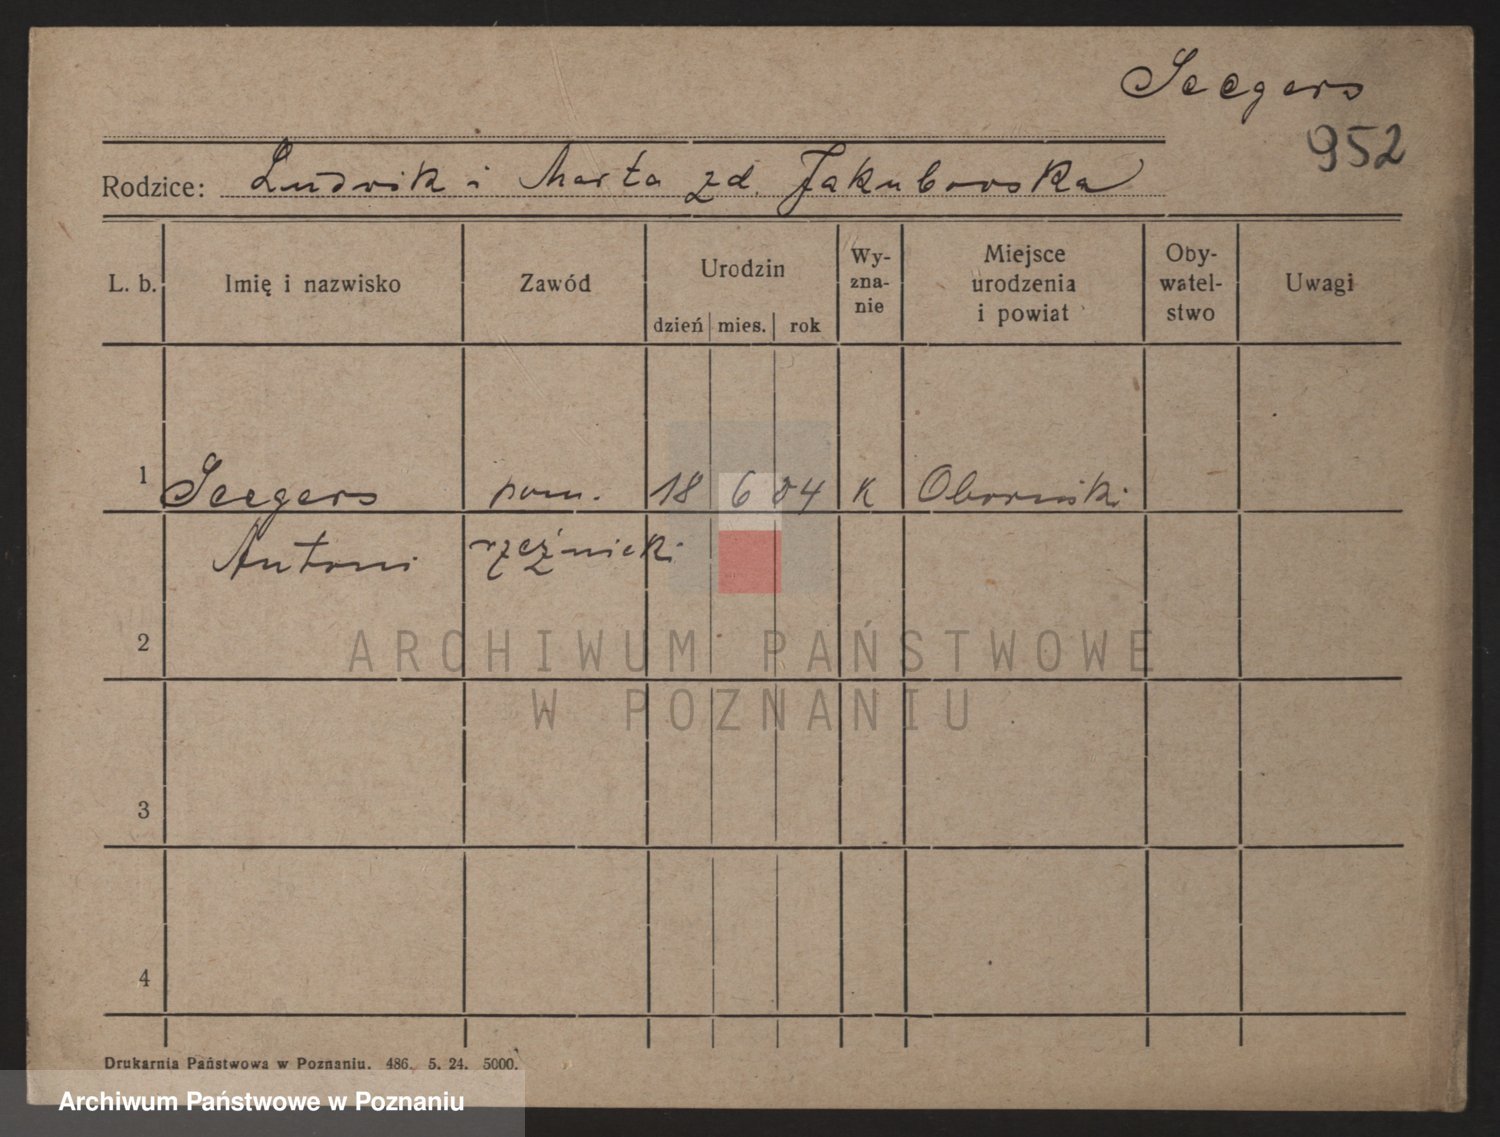 Seegers
952
Rodzice: Ludwik i Marta zd. Jakubowska
L. b. Imię i nazwisko Zawód Urodzin dzień mies. rok Wy-zna-nie Miejsce urodzenia i powiat Oby-watel-stwo Uwagi
1 Seegers pom. 18 6 04 K Obornicki
Antoni rzeźnicki
2
3
4
ARCHIWUM PAŃSTWOWE
W POZNANIU
Drukarnia Państwowa w Poznaniu. 486. 5. 24. 5000.
Archiwum Państwowe w Poznaniu